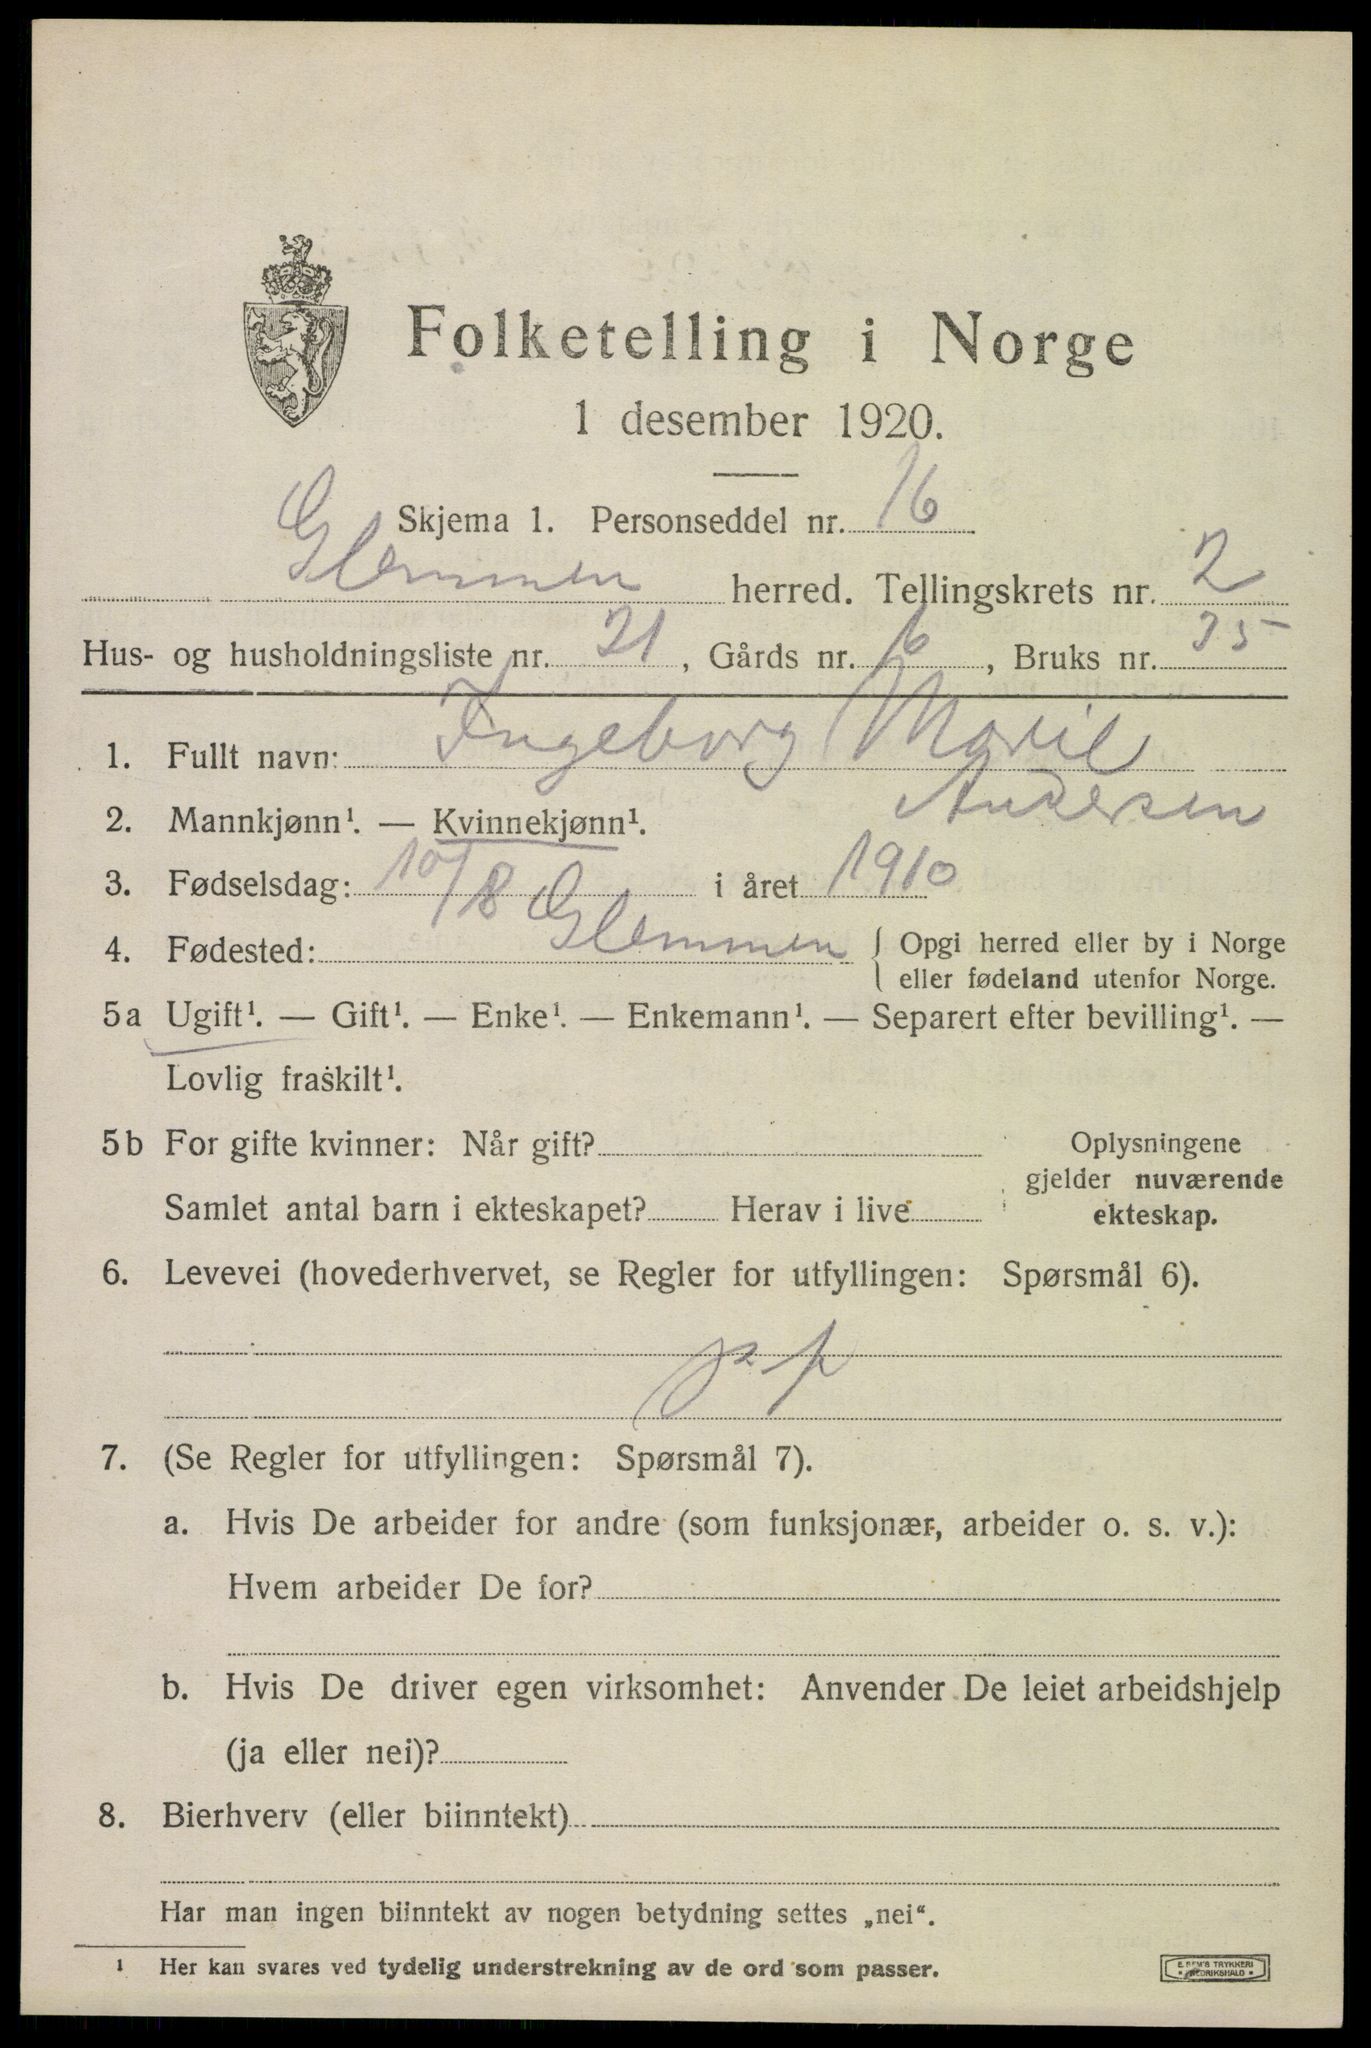 Folketelling i Norge
1 desember 1920.
Skjema 1. Personseddel nr. 16
Glemmen herred. Tellingskrets nr. 2
Hus- og husholdningsliste nr. 21, Gårds nr. 6, Bruks nr. 35
1. Fullt navn: Ingeborg Marie
Andersen
2. Mannkjønn¹. — Kvinnekjønn¹.
3. Fødselsdag: 10/8 i året 1910
4. Fødested: Glemmen { Opgi herred eller by i Norge
eller fødeland utenfor Norge.
5a Ugift¹. — Gift¹. — Enke¹. — Enkemann¹. — Separert efter bevilling¹. —
Lovlig fraskilt¹.
5b For gifte kvinner: Når gift? Oplysningene
gjelder nuværende
Samlet antal barn i ekteskapet? Herav i live ekteskap.
6. Levevei (hovederhvervet, se Regler for utfyllingen: Spørsmål 6).
7. (Se Regler for utfyllingen: Spørsmål 7).
a. Hvis De arbeider for andre (som funksjonær, arbeider o. s. v.):
Hvem arbeider De for?
b. Hvis De driver egen virksomhet: Anvender De leiet arbeidshjelp
(ja eller nei)?
8. Bierhverv (eller biinntekt)
Har man ingen biinntekt av nogen betydning settes „nei“.
¹ Her kan svares ved tydelig understrekning av de ord som passer.
E. SEM'S TRYKKERI
FREDRIKSHALD